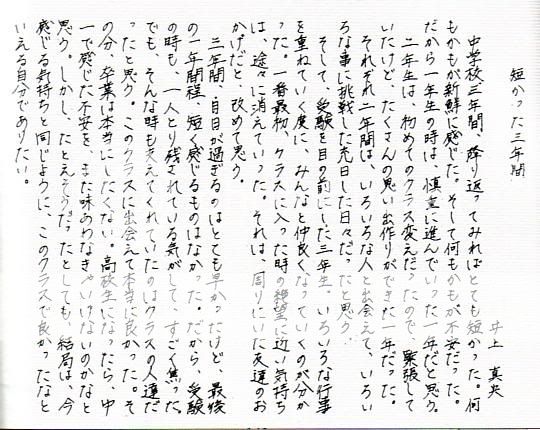 短かった三年間
井上 真央
中学校三年間、降り返ってみればとても短かった。何
もかもが新鮮に感じた。そして何もかもが不安だった。
だから一年生の時は、慎重に進んでいった一年だと思う。
二年生は、初めてのクラス変えだったので、緊張して
いたけど、たくさんの思い出作りができた一年だった。
それぞれ二年間は、いろいろな人と出会えて、いろい
ろな事に挑戦した充日した日々だったと思う。
そして、受験を目の前にした三年生。いろいろな行事
を重ねていく度に、みんなと仲良くなっていくのが分か
った。一番最初、クラスに入った時の絶望に近い気持ち
は、途々に消えていった。それは、周りにいた友達のお
かげだと、改めて思う。
三年間、日日が過ぎるのはとても早かったけど、最後
の一年間程、短く感じるものはなかった。だから、受験
の時も、一人とり残されている気がして、すごく焦った。
でも、そんな時も支えてくれていたのはクラスの人達だ
ったと思う。このクラスに出会えて本当に良かった。そ
の分、卒業は本当にしたくない。高校生になったら、中
一で感じた不安を、また味あわなきゃいけないのかなと
思う。しかし、たとえそうだったとしても、結局は、今
感じる気持ちと同じように、このクラスで良かったなと
いえる自分でありたい。